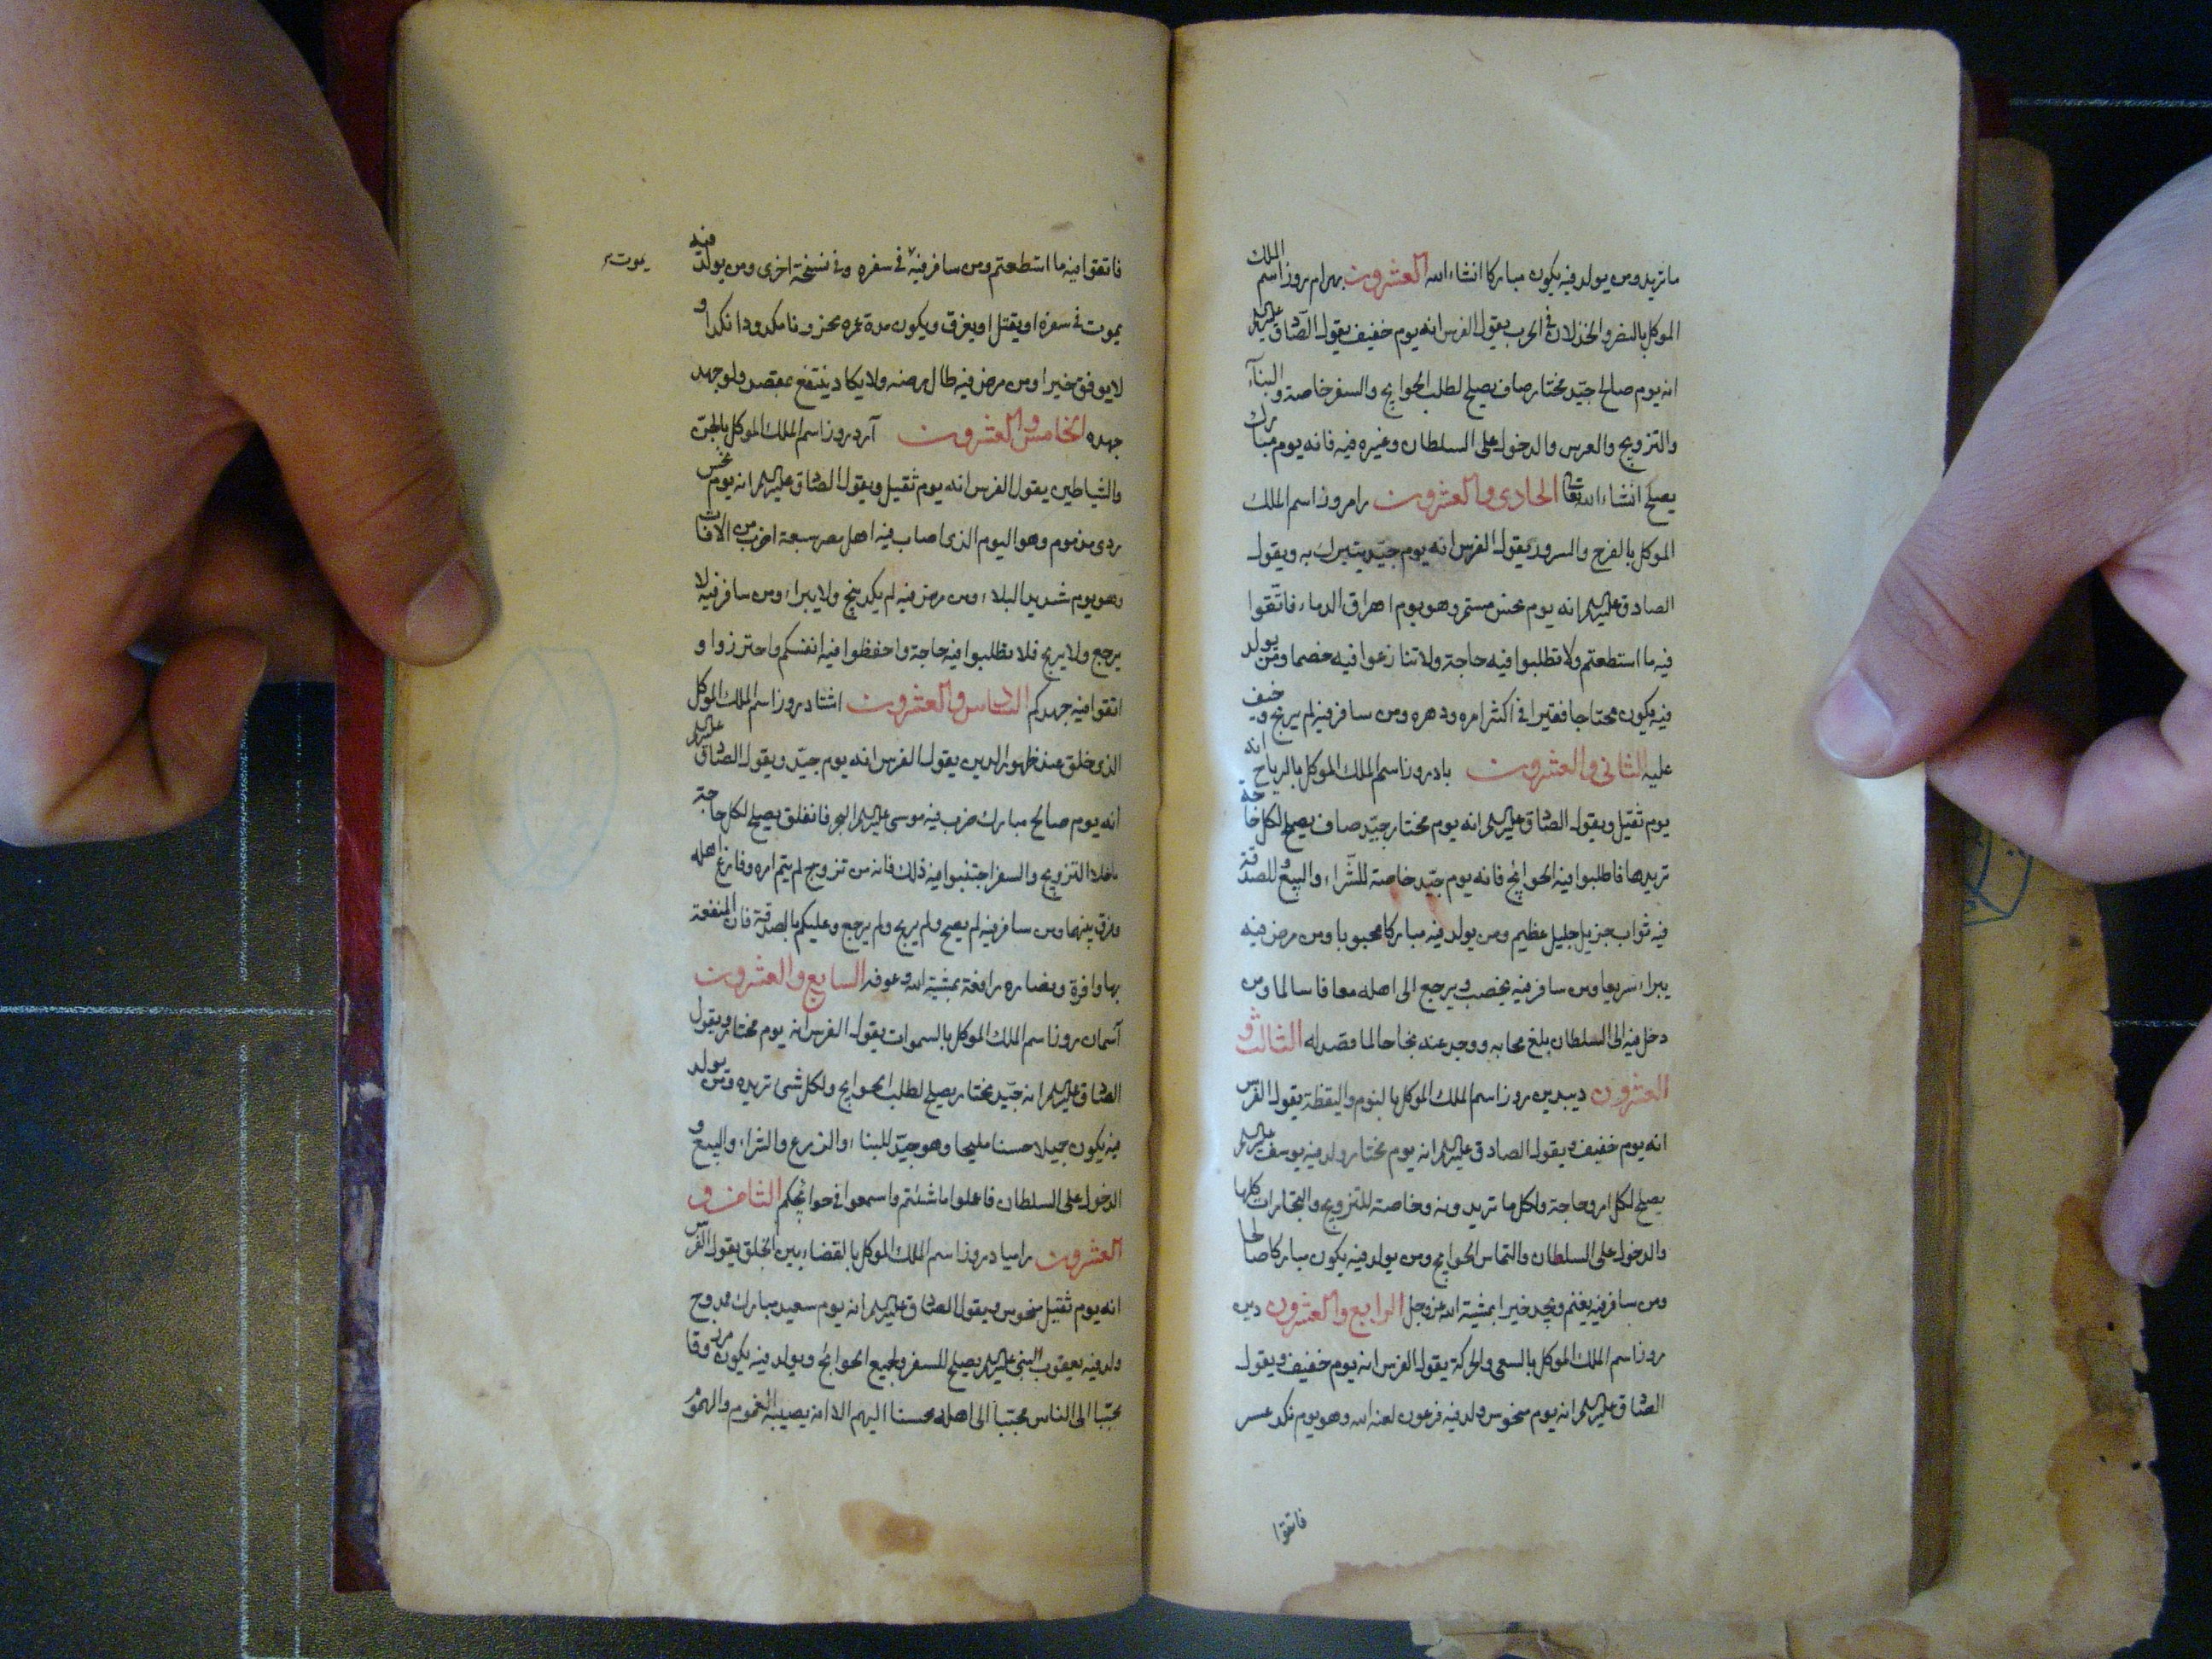 ما تريد ومن يولد فيه يكون مباركا انشاء الله العشرون بهرام روز اسم الملك
الموكل بالنصر والخذلان في الحرب يقول الفرس انه يوم خفيف يقول الصادق عليه السلم
انه يوم صالح جيّد مختار صاف يصلح لطلب الحوايج والسفر خاصة والبنآء
والتزويج والعرس والدخول على السلطان وغيره فيه فانه يوم مبارك
يصلح انشاء الله تعالى الحادى والعشرون رامروز اسم الملك
الموكل بالفرح والسرور يقول الفرس انه يوم جيّد يتبرك به ويقول
الصادق عليه السلم انه يوم نحس مستمر وهو يوم اهراق الدماء فاتّقوا
فيه ما استطعتم ولا تطلبوا فيه حاجة ولا تنازعوا فيه خصما ومن يولد
فيه يكون محتاجا فقيرا في اكثر امره ودهره ومن سافر فيه لم يربح وخيف
عليه الثانى والعشرون باد روز اسم الملك الموكل بالرياح انه
يوم ثقيل ويقول الصادق عليه السلم انه يوم مختار جيّد صاف يصلح لكل حاجة
تريدها فاطلبوا فيه الحوايج فانه يوم جيّد خاصة للشّراء والبيع وللصدقة
فيه ثواب جزيل جليل عظيم ومن يولد فيه مباركا محبوبا ومن مرض فيه
يبراء سريعا ومن سافر فيه يخصب ويرجع الى اهله معافا سالما ومن
دخل فيه الى السلطان بلغ محابه ووجد عنده نجاحا لما قصد له الثالث و
العشرون ديبدين روز اسم الملك الموكل بالنوم واليقظة يقول الفرس
انه يوم خفيف ويقول الصادق عليه السلم انه يوم مختار ولد فيه يوسف عليه السلم
يصلح لكل امر وحاجة ولكل ما تريدونه وخاصة للتزويج والتجارات كلها
والدخول على السلطان والتماس الحوايج ومن يولد فيه يكون مباركا صالحا
ومن سافر فيه يغنم ويجد خيرا بمشية الله عز وجل الرابع والعشرون دين
روز اسم الملك الموكل بالسعى والحركة يقول الفرس انه يوم خفيف ويقول
الصادق عليه السلم انه يوم منحوس ولد فيه فرعون لعنه الله وهو يوم نكد عسر
فاتقوا
فاتقوا فيه ما استطعتم ومن سافر فيه في سفره وفي نسخة اخرى ومن يولد فيه
يموت
يموت في سفره او يقتل او يغرق ويكون مدة عمره محزونا مكدودا نكدا و
لا يوفق خيرا ومن مرض فيه طال مرضه ولا يكاد ينتفع بمقصد ولو جهد
جهده الخامس والعشرون آرد روز اسم الملك الموكل بالجن
والشياطين يقول الفرس انه يوم ثقيل ويقول الصادق عليه السلم انه يوم نحس
ردى مذموم وهو اليوم الذى اصاب فيه اهل مصر سبعة اضرب من الافات
وهو يوم شديد البلاء ومن مرض فيه لم يكد ينج ولا يبراء ومن سافر فيه لا
يرجع ولا يربح فلا تطلبوا فيه حاجة واحفظوا فيه انفسكم واحترزوا و
اتقوا فيه جهدكم السادس والعشرون اشتاد روز اسم الملك الموكل
الذى خلق عند ظهور الدين يقول الفرس انه يوم جيّد ويقول الصادق عليه السلم
انه يوم صالح مبارك ضرب فيه موسى عليه السلم البحر فانفلق يصلح لكل حاجة
ما خلا التزويج والسفر اجتنبوا فيه ذلك فانه من تزوج لم يتم امره وفارغ اهله
وفرق بينهما ومن سافر فيه لم يصلح ولم يربح ولم يرجع وعليكم بالصدقة فان المنفعة
بها وافرة ومضاره رافعة بمشية الله وعونه السابع والعشرون
آسمان روز اسم الملك الموكل بالسموات يقول الفرس انه يوم مختار ويقول
الصادق عليه السلم انه جيّد مختار يصلح لطلب الحوايج ولكل شئ تريده ومن يولد
فيه يكون جميلا حسنا مليحا وهو جيّد للبناء والزرع والشراء والبيع و
الدخول على السلطان فاعملوا ما شئتم واسعوا في حوائجكم الثامن و
العشرون راميادروز اسم الملك الموكل بالقضاء بين الخلق يقول الفرس
انه يوم ثقيل منحوس ويقول الصادق عليه السلم انه يوم سعيد مبارك ممدوح
ولد فيه يعقوب النبى عليه السلم يصلح للسفر ولجميع الحوائج ويولد فيه يكون مرزوقا
محببا الى الناس محببا الى اهله محسنا اليهم الا انه يصيبه الغموم والهموم